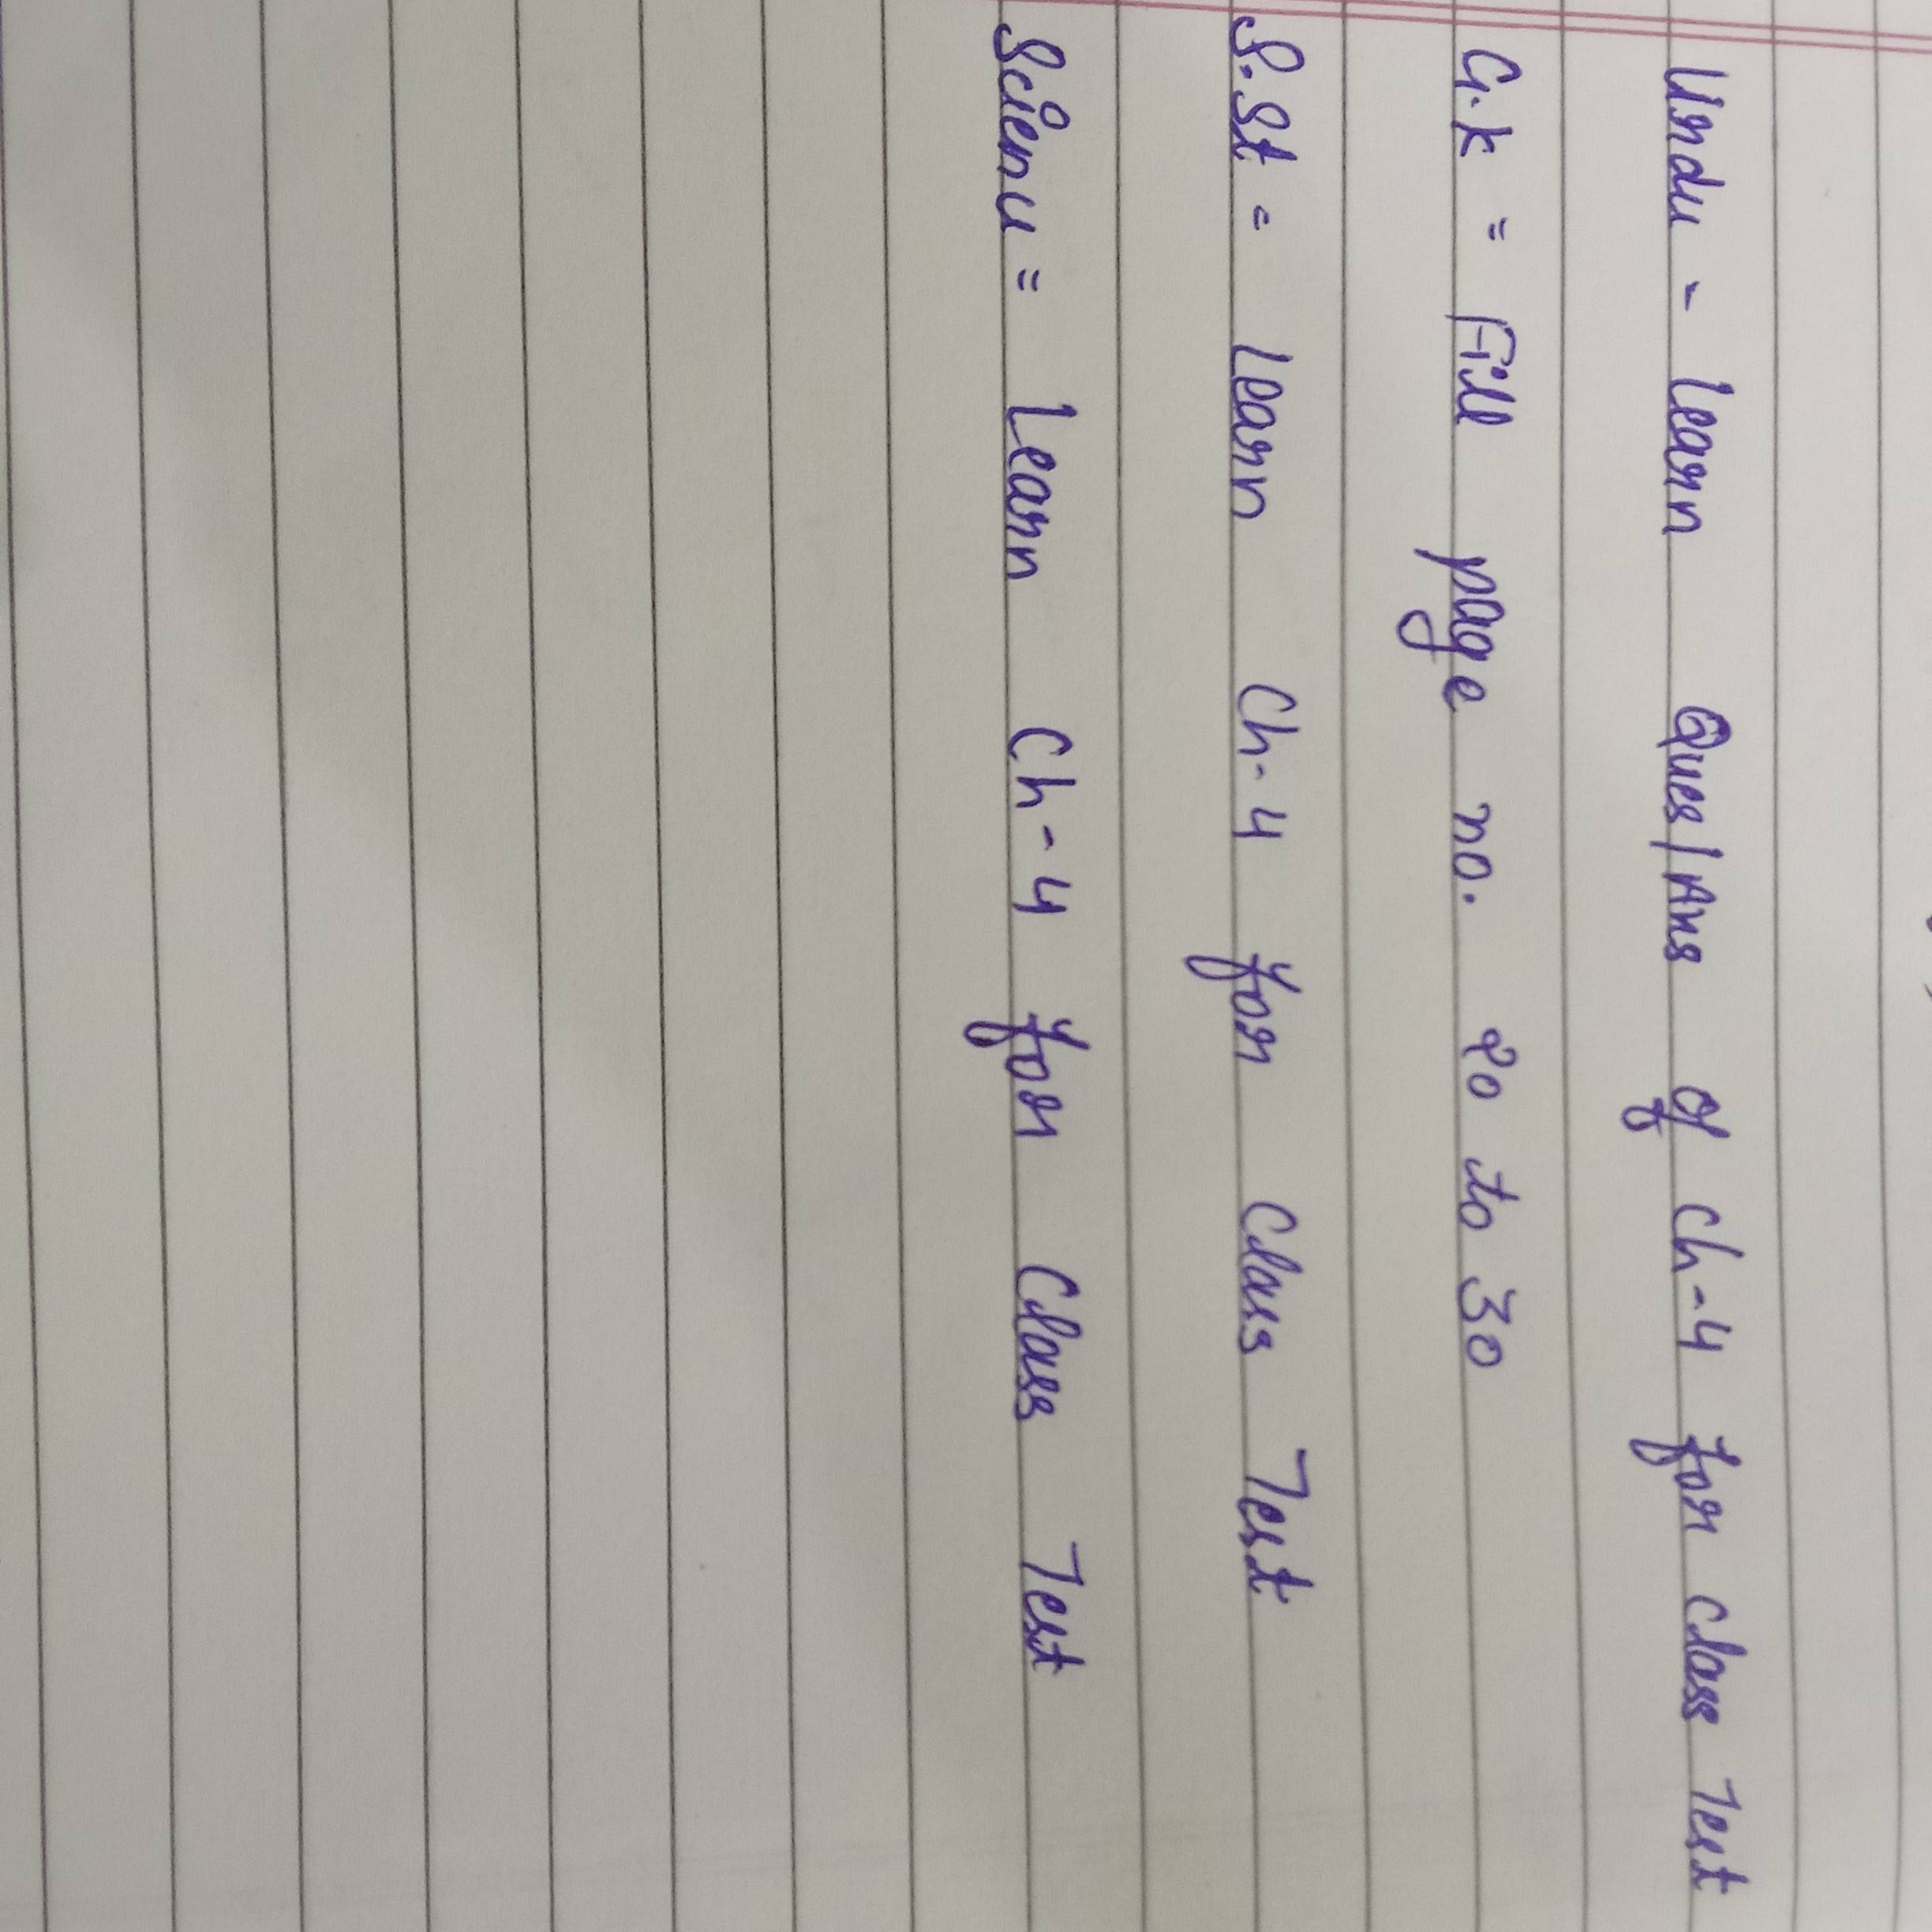 Urdu - Learn Ques/Ans of Ch-4 for Class Test
G.K = Fill page no. 20 to 30
S.St = Learn Ch-4 for Class Test
Science = Learn Ch-4 for Class Test